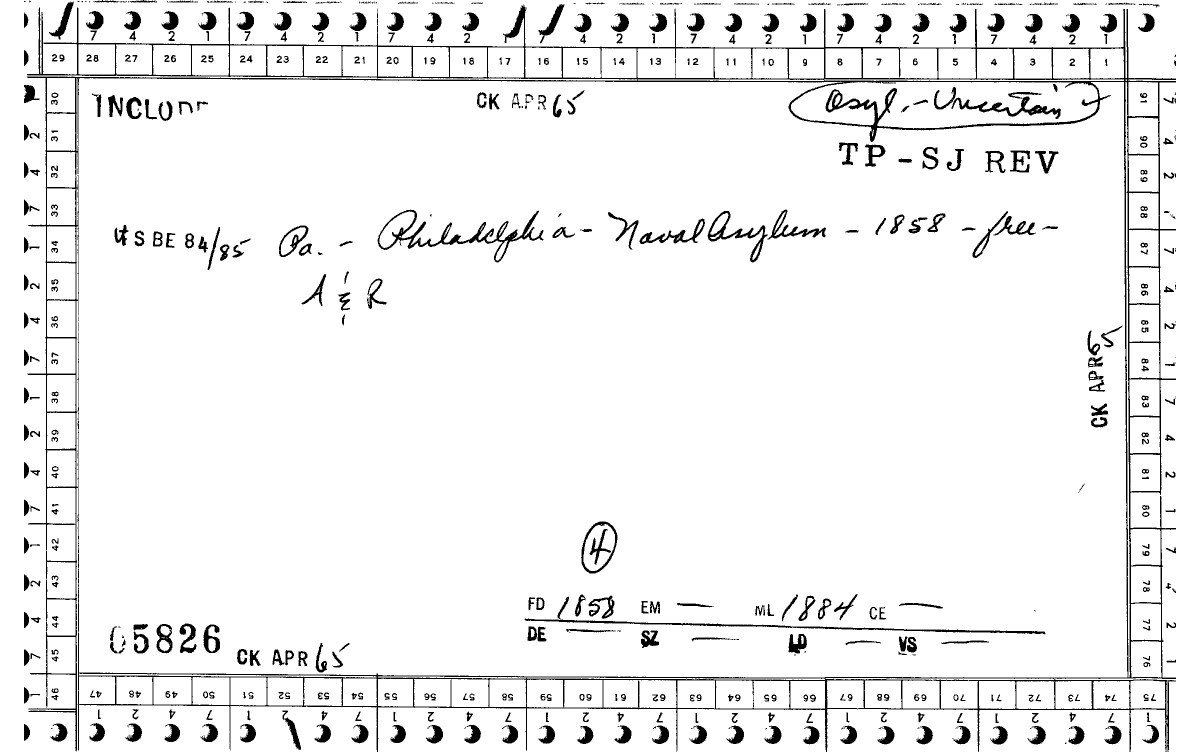 7 4 2 1 7 4 2 1 7 4 2 1 7 4 2 1 7 4 2 1 7 4 2 1 7 4 2 1
29 28 27 26 25 24 23 22 21 20 19 18 17 16 15 14 13 12 11 10 9 8 7 6 5 4 3 2 1
CK APR 65
Asyl. - Uncertain
TP - SJ REV
USBE 84/85 Pa. - Philadelphia - Naval Asylum - 1858 - free -
A & R
CK APR 65
4
FD 1858 EM — ML 1884 CE —
DE — SZ — LD — VS —
05826 CK APR 65
30 31 32 33 34 35 36 37 38 39 40 41 42 43 44 45 46
91 90 89 88 87 86 85 84 83 82 81 80 79 78 77 76
47 48 49 50 51 52 53 54 55 56 57 58 59 60 61 62 63 64 65 66 67 68 69 70 71 72 73 74 75
1 2 4 7 1 2 4 7 1 2 4 7 1 2 4 7 1 2 4 7 1 2 4 7 1 2 4 7 1